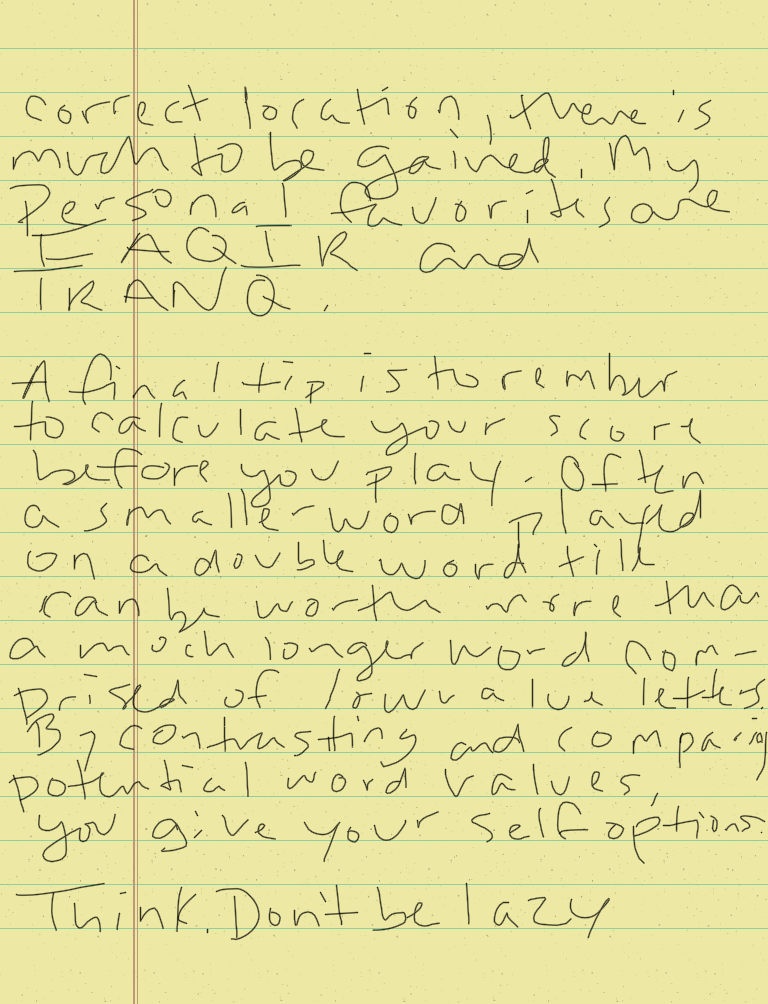 correct location, there is
much to be gained. My
Personal favorites are
FAQIR and
TRANQ.
A final tip is to remember
to calculate your score
before you play. Often
a smaller word played
on a double word till
can be worth more than
a much longer word com-
prised of low value letters.
By contrasting and comparing
potential word values,
you give your self options.
Think. Don't be lazy